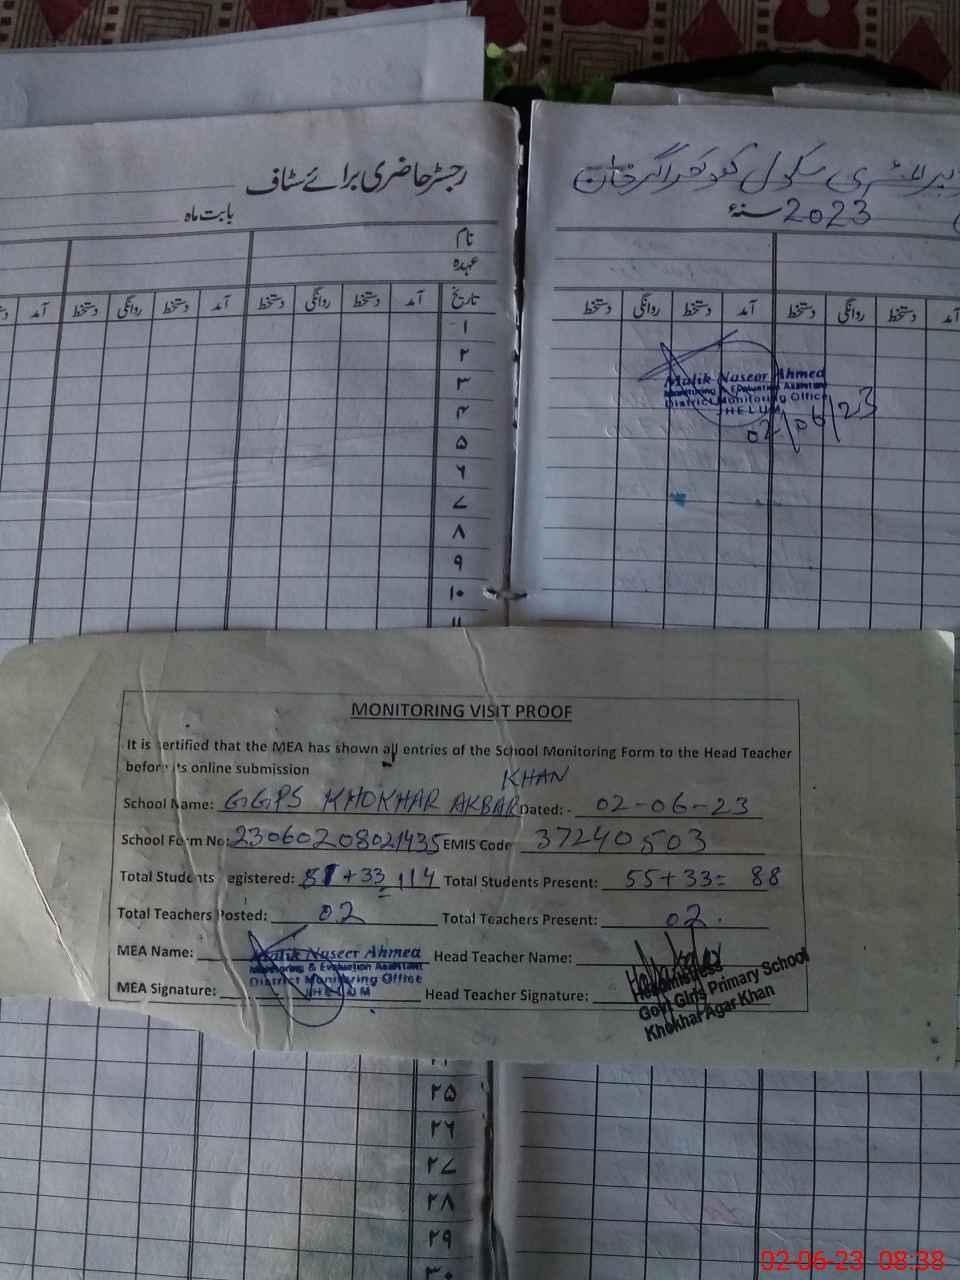 رجسٹر حاضری برائے سٹاف
بابت ماہ
سکول کھوکھر اگر خان
2023 سنۂ
نام
عہدہ
تاریخ آمد دستخط روانگی دستخط آمد دستخط روانگی دستخط آمد
آمد دستخط روانگی دستخط آمد دستخط روانگی دستخط
۱
۲
۳
۴
۵
۶
۷
۸
۹
۱۰
۱۱
Malik Naseer Ahmed
Monitoring & Evaluation Assistant
District Monitoring Office
JHELUM
02/06/23
MONITORING VISIT PROOF
It is certified that the MEA has shown all entries of the School Monitoring Form to the Head Teacher
before its online submission
KHAN
School Name: GGPS KHOKHAR AKBAR Dated: - 02-06-23
School Form No: 23060208021435 EMIS Code 37240503
Total Students Registered: 81+33 = 114 Total Students Present: 55+33= 88
Total Teachers Posted: 02 Total Teachers Present: 02.
MEA Name: Malik Naseer Ahmed Head Teacher Name:
Monitoring & Evaluation Assistant
District Monitoring Office
JHELUM
MEA Signature: Head Teacher Signature:
Headmistress
Govt Girls Primary School
Khokhar Agar Khan
۲۵
۲۶
۲۷
۲۸
۲۹
۳۰
02-06-23 08:38